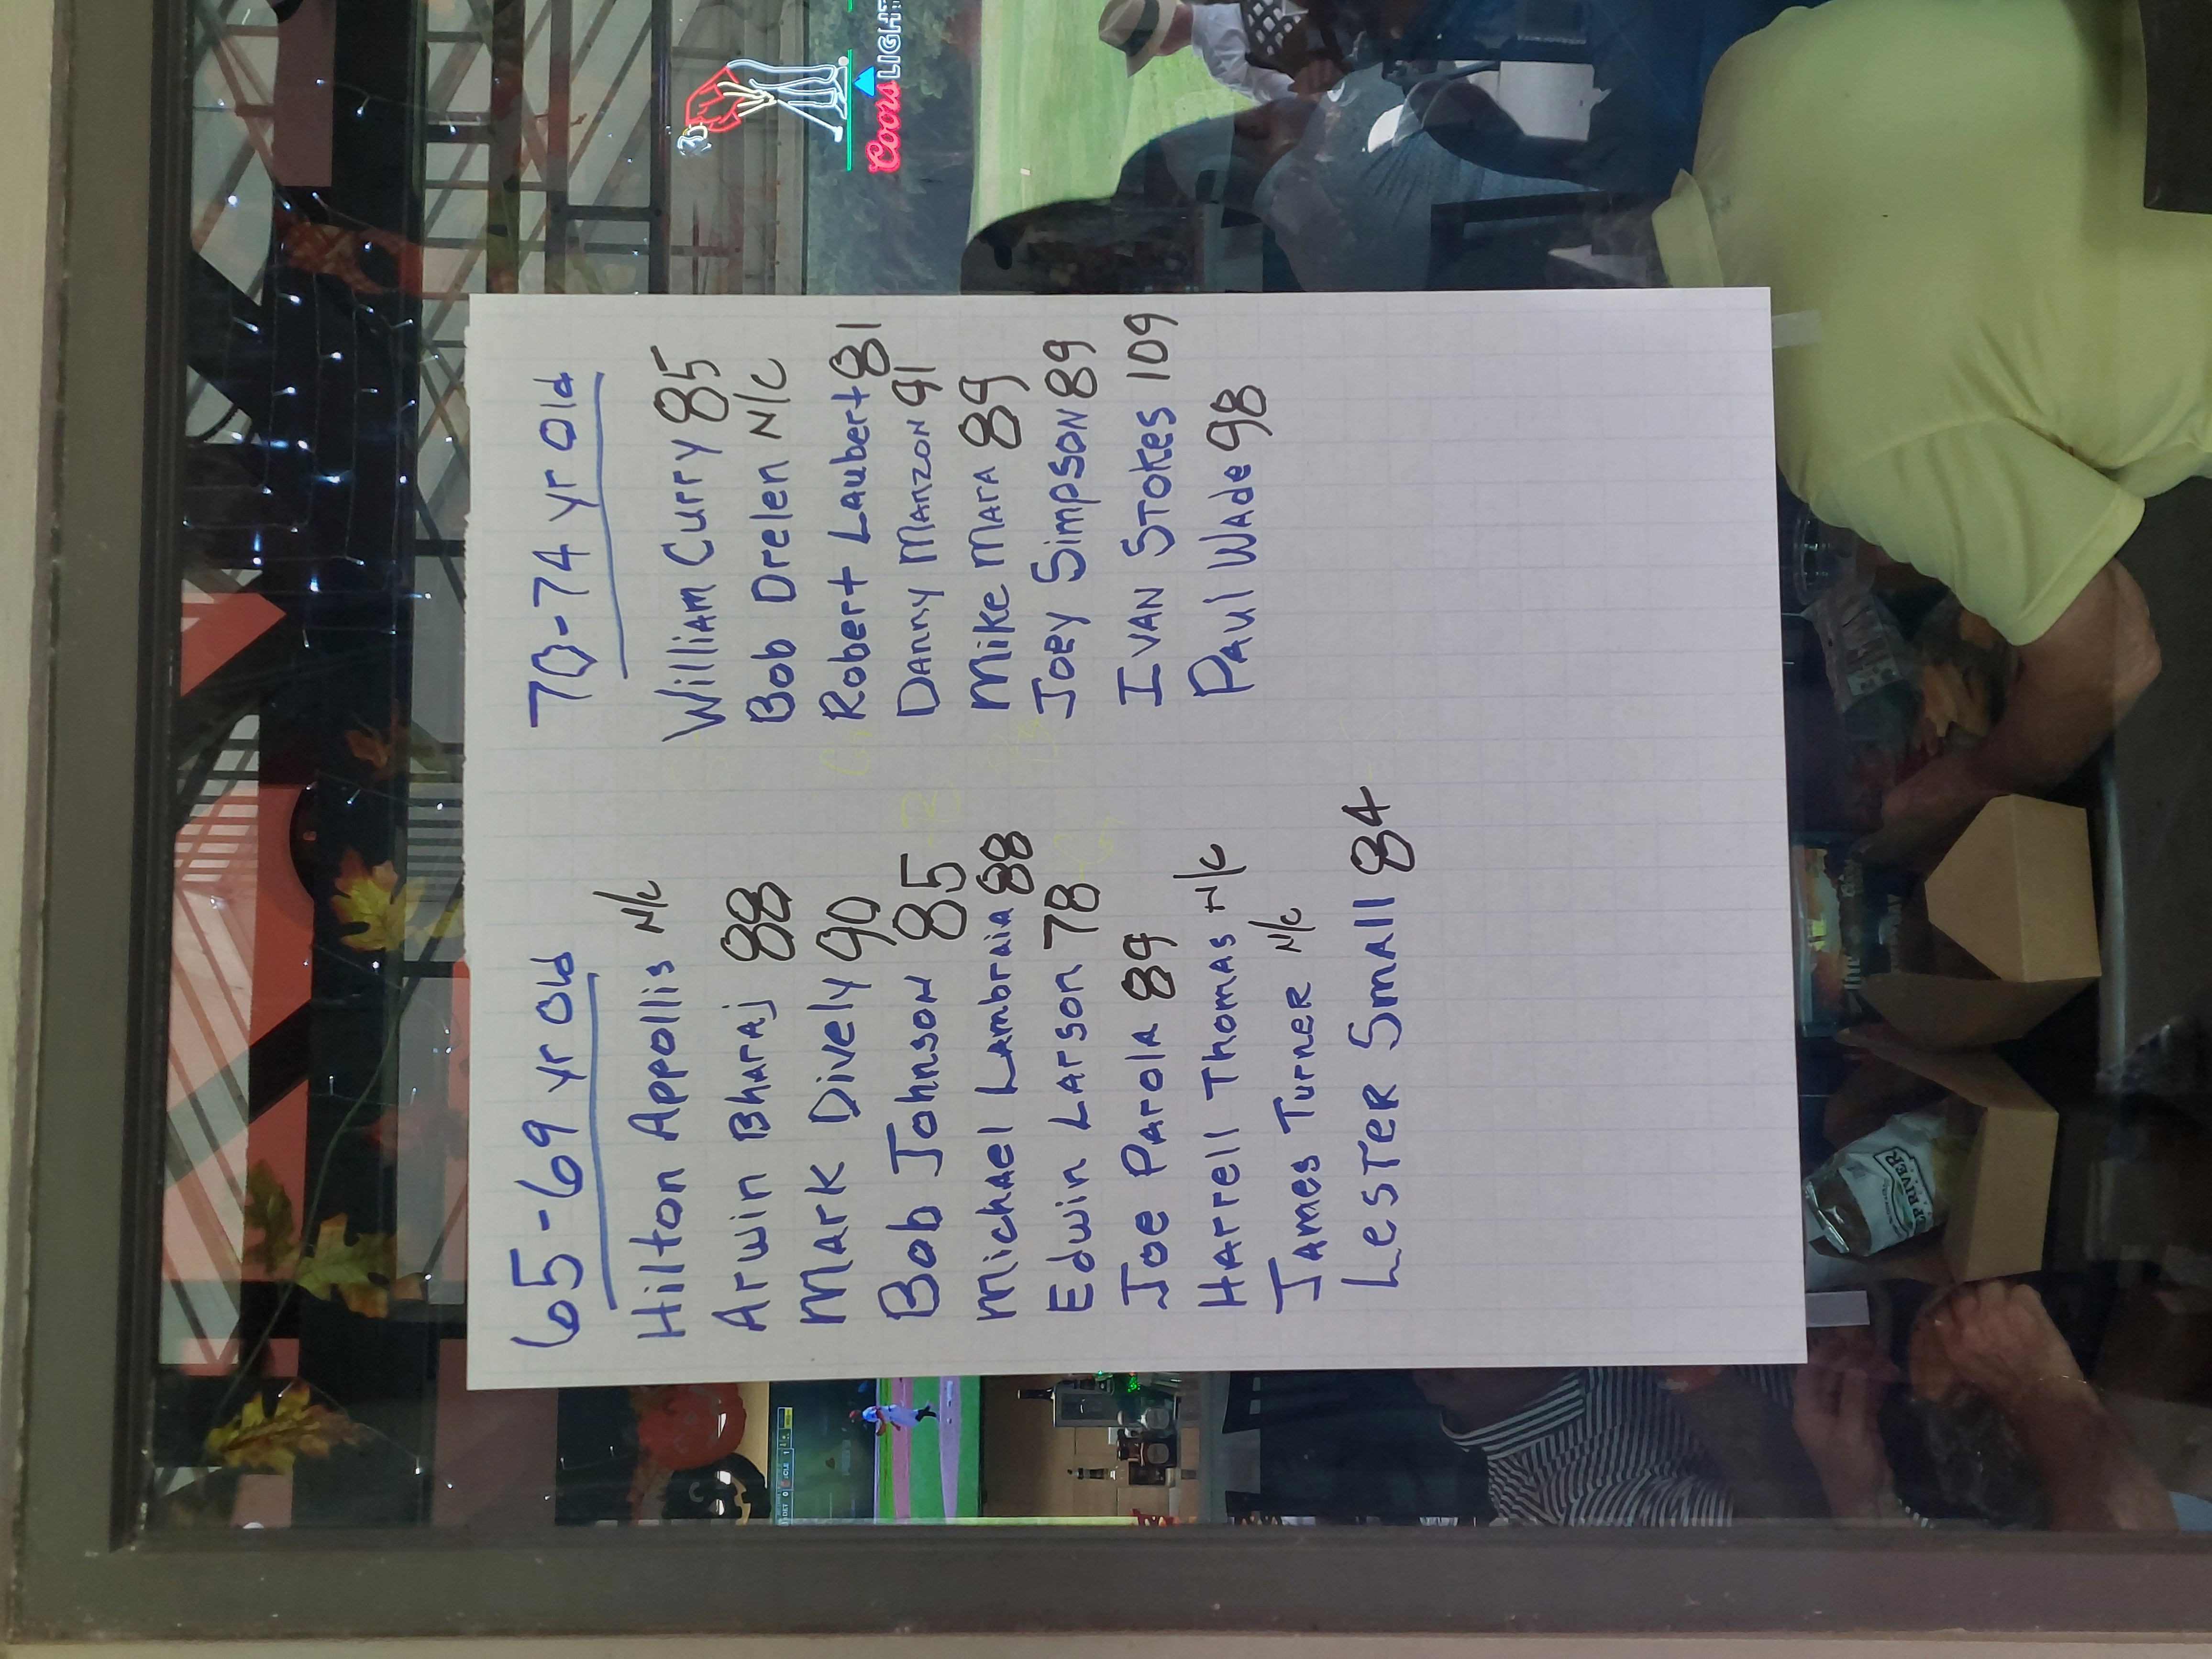 65-69 yr Old
Hilton Appollis N/C
Arwin Bharaj 88
Mark Dively 90
Bob Johnson 85
Michael Lambraia 88
Edwin Larson 78
Joe Parola 89
Harrell Thomas N/C
James Turner N/C
Lester Small 84
70-74 yr Old
William Curry 85
Bob Drelen N/C
Robert Laubert 81
Danny Manzon 91
Mike Mara 89
Joey Simpson 89
Ivan Stokes 109
Paul Wade 98
Coors LIGHT